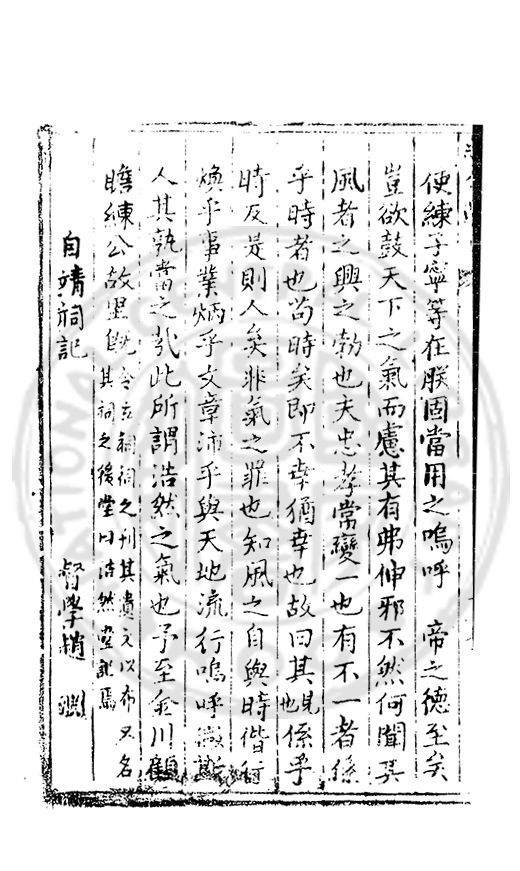 使練子寧等在朕固當用之嗚呼　帝之德至矣
豈欲鼓天下之氣而慮其有弗伸邪不然何聞其
風者之興之勃也夫忠孝常變一也有不一者係
乎時者也苟時矣即不幸猶幸也故曰其見也係乎
時反是則人矣非氣之罪也知風之自與時偕行
煥乎事業炳乎文章沛乎與天地流行嗚呼微斯
人其孰當之哉此所謂浩然之氣也予至金川顧
瞻練公故里既令立祠祠之刊其遺文以布又名
其祠之後堂曰浩然堂記焉
自靖祠記
督學趙